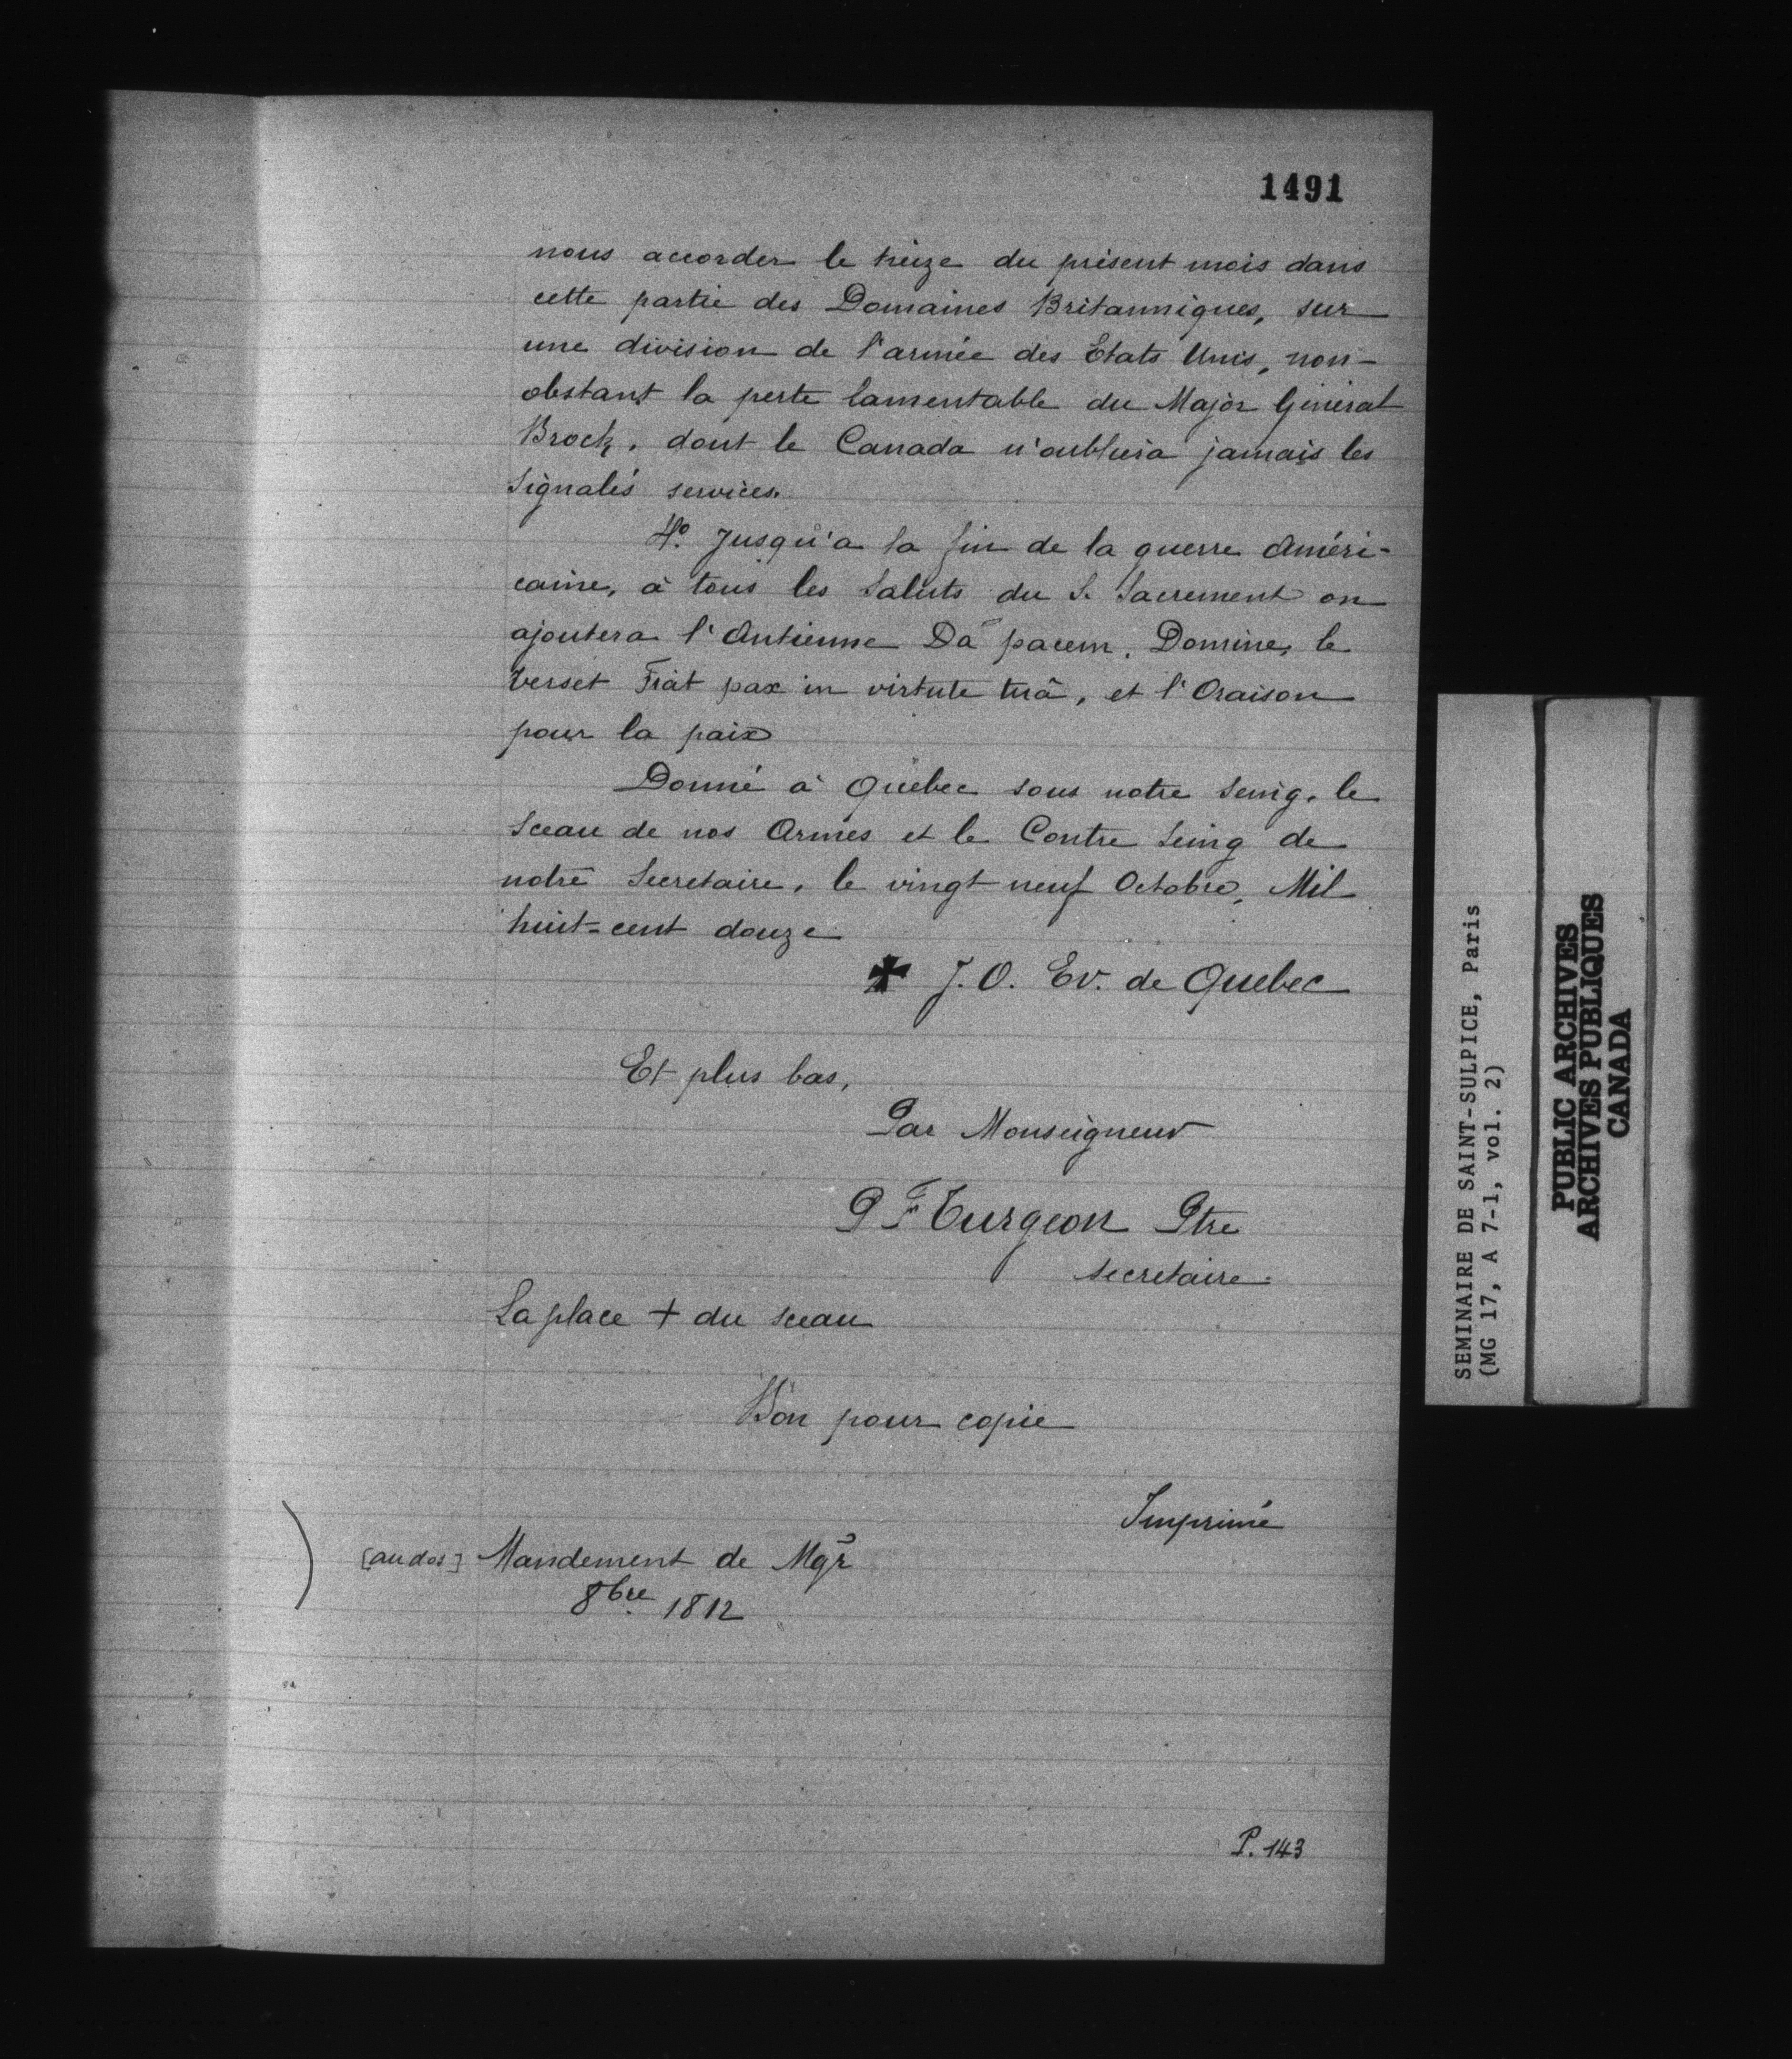 1491
nous accorder le treize du présent mois dans
cette partie des Domaines Britanniques, sur
une division de l'armée des Etats Unis, non-
obstant la perte lamentable du Major Général
Brock, dont le Canada n'oubliera jamais les
signalés services.
4º. Jusqu'a la fin de la guerre Améri-
caine, à tous les Saluts du S. Sacrement on
ajoutera l'Antienne Da pacem, Domine, le
Verset Fiat pax in virtute tuâ, et l'Oraison
pour la paix
Donné à Québec sous notre Seing, le
Sceau de nos Armes et le Contre Seing de
notre Secretaire, le vingt neuf Octobre, Mil
huit-cent douze
✠ J. O. Ev. de Quebec
Et plus bas,
Par Monseigneur
P F Turgeon Ptre
secretaire.
La place + du sceau
Bon pour copie
Imprimé
[au dos] Mandement de Mgr
8bre 1812
P. 143
SEMINAIRE DE SAINT-SULPICE, Paris
(MG 17, A 7-1, vol. 2)
PUBLIC ARCHIVES
ARCHIVES PUBLIQUES
CANADA